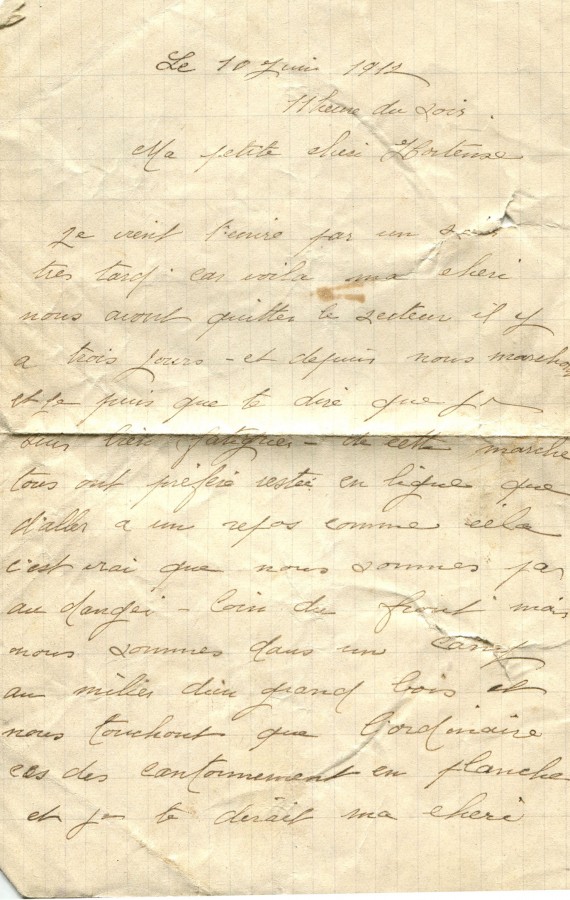 Le 10 Juin 1912
11 heure du soir.
Ma petite cheri Hortense
Je vient t'ecrire par un soir
tres tard. car voila ma cheri
nous avont quitter le secteur il y
a trois jours - et depuis nous marchon
et je puis que te dire que je
suis bien fatiguer - de cette marche
tous ont préféré restée en ligne que
d'aller a un repos comme cela
c'est vrai que nous sommes pas
au danger - loin du front mais
nous sommes dans un camp
au milier d'un grand bois et
nous touchont que l'ordinaire
des cantonnement en planche
et je te dirait ma cheri